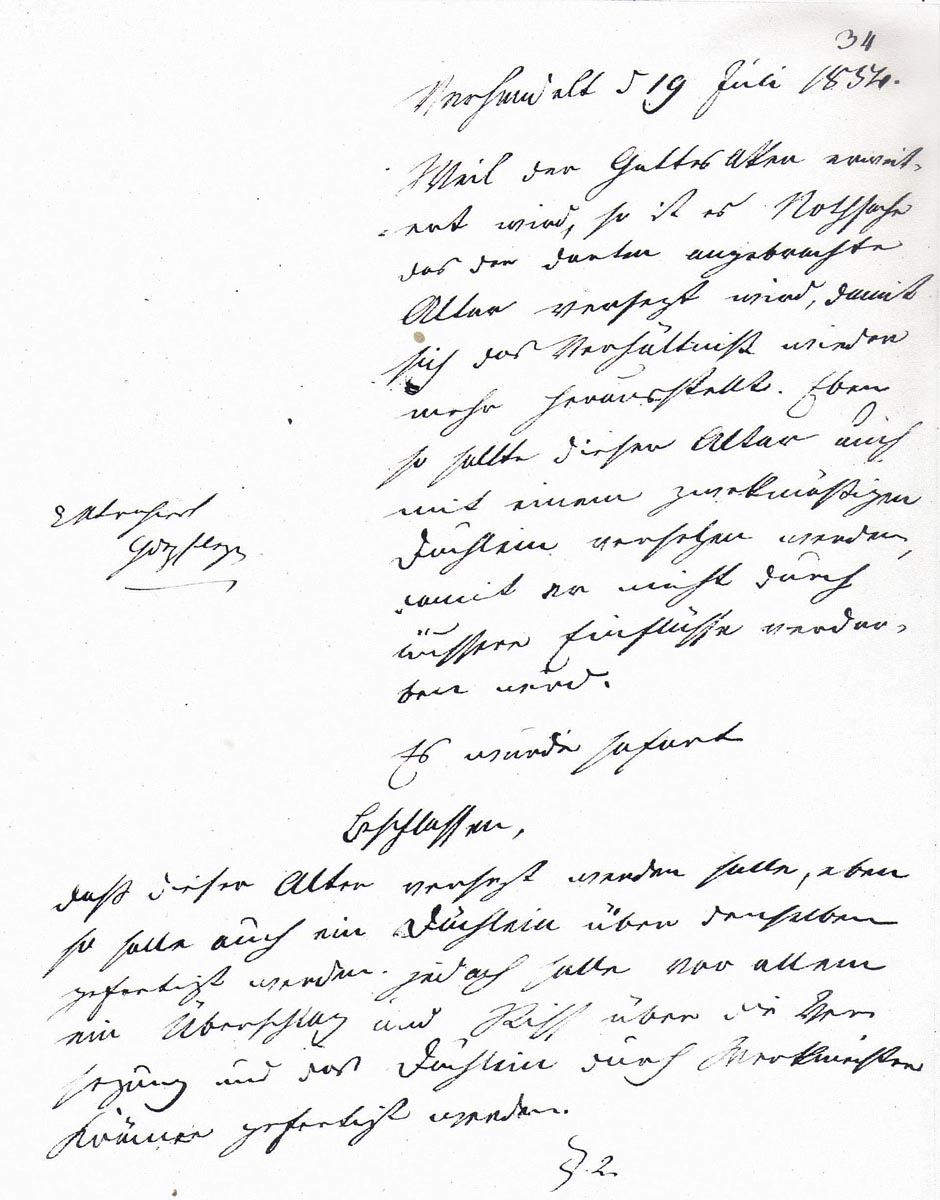 34
Verhandelt d 19 Juli 1854.
Weil der GottesAker erweit-
ert wird, so ist es Nothsache
das der darin angebrachte
Altar versezt wird, damit
sich das Verhältniß wieder
mehr herausstellt. Eben
so sollte dieser Altar auch
mit einem zwekmäßigen
Extrahirt
Dächlein versehen werden,
damit er nicht durch
äussere Einflüsse verdor-
ben wird.
Es wurde sofort
Beschlossen,
daß dieser Altar versezt werden solle, eben
so solle auch ein Dächlein über denselben
gefertigt werden. jedoch solle vor allem
ein Überschlag und Riß über die Ver
sezung und das Dächlein durch Werkmeister
Krämer gefertigt werden.
§ 2.